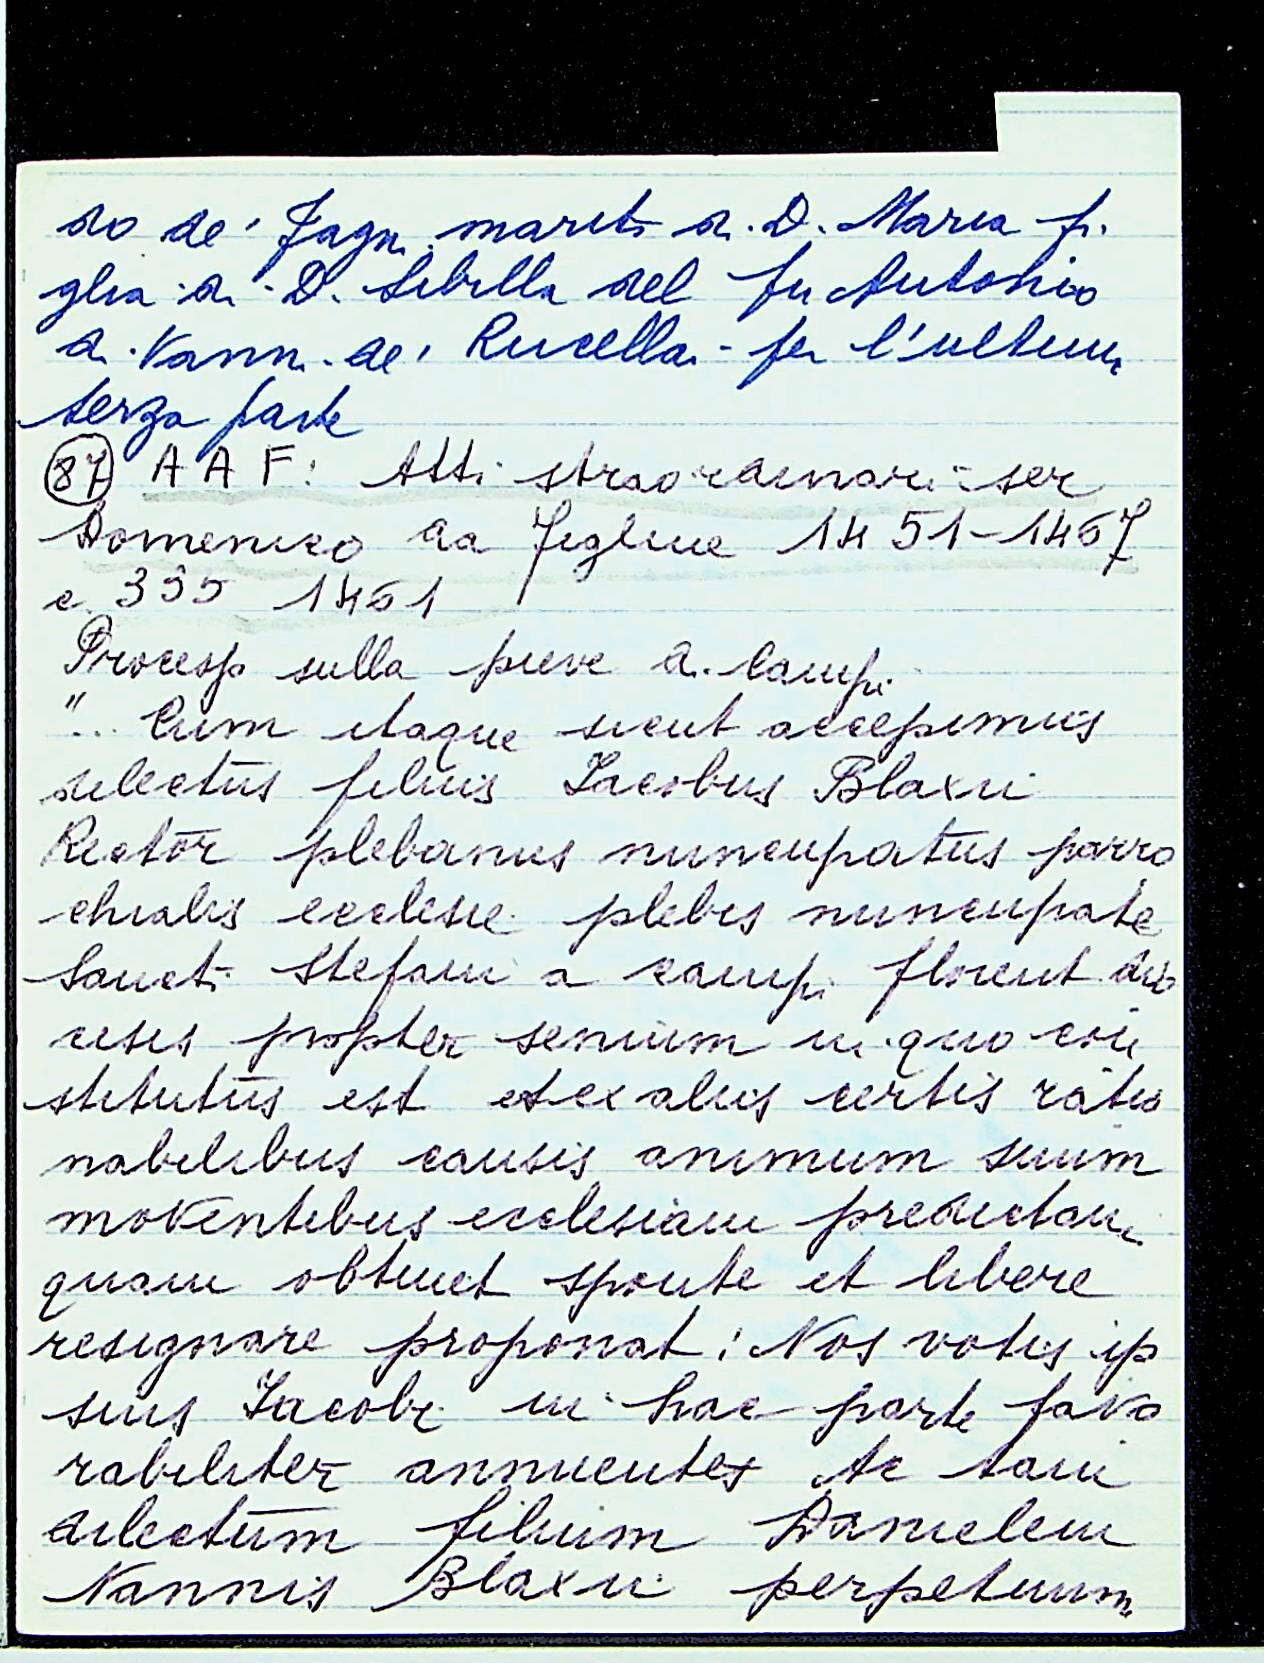 do de' Fagni marito di D. Maria fi
glia di D. Sibilla del fu Antonio
di Vanni de' Rucellai per l'ultima
terza parte
87 A A F: Atti straordinari ser
Domenico da Figline 1451-1467
c 335 1461
Processo sulla pieve di Campi
"... Cum itaque sicut accepimus
dilectus filius Jacobus Blaxii
Rector plebanus nuncupatus parro
chialis ecclesie plebis nuncupate
Sancti Stefani a campi florent dio
cesis propter senium in quo con
stitutus est et ex aliis certis ratio
nabilibus causis animum suum
moventibus ecclesiam predictam
quam obtinet sponte et libere
resignare proponat: Nos votis ip
sius Jacobi in hac parte favo
rabiliter annuentes te tam
dilectum filium Danielem
Nannis Blaxii perpetuum